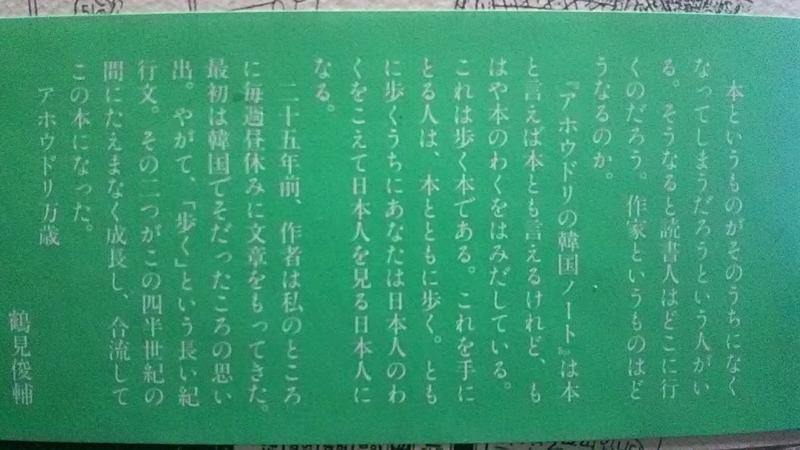 本というものがそのうちになく
なってしまうだろうという人がい
る。そうなると読書人はどこに行
くのだろう。作家というものはど
うなるのか。
『アホウドリの韓国ノート』は本
と言えば本とも言えるけれど、も
はや本のわくをはみだしている。
これは歩く本である。これを手に
とる人は、本とともに歩く。とも
に歩くうちにあなたは日本人のわ
くをこえて日本人を見る日本人に
なる。
二十五年前、作者は私のところ
に毎週昼休みに文章をもってきた。
最初は韓国でそだったころの思い
出。やがて、「歩く」という長い紀
行文。その二つがこの四半世紀の
間にたえまなく成長し、合流して
この本になった。
アホウドリ万歳
鶴見俊輔